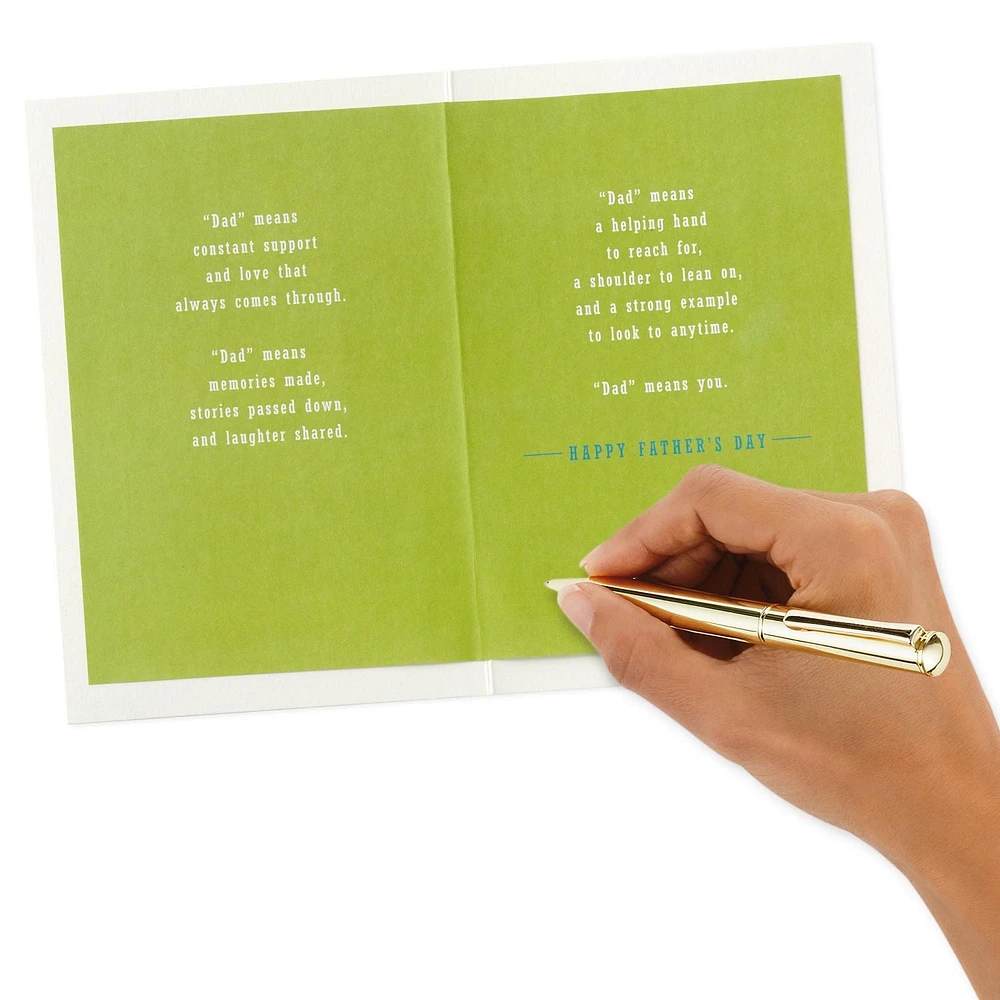 “Dad” means
constant support
and love that
always comes through.
“Dad” means
memories made,
stories passed down,
and laughter shared.
“Dad” means
a helping hand
to reach for,
a shoulder to lean on,
and a strong example
to look to anytime.
“Dad” means you.
HAPPY FATHER’S DAY